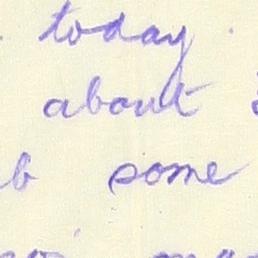 today.
about
b some